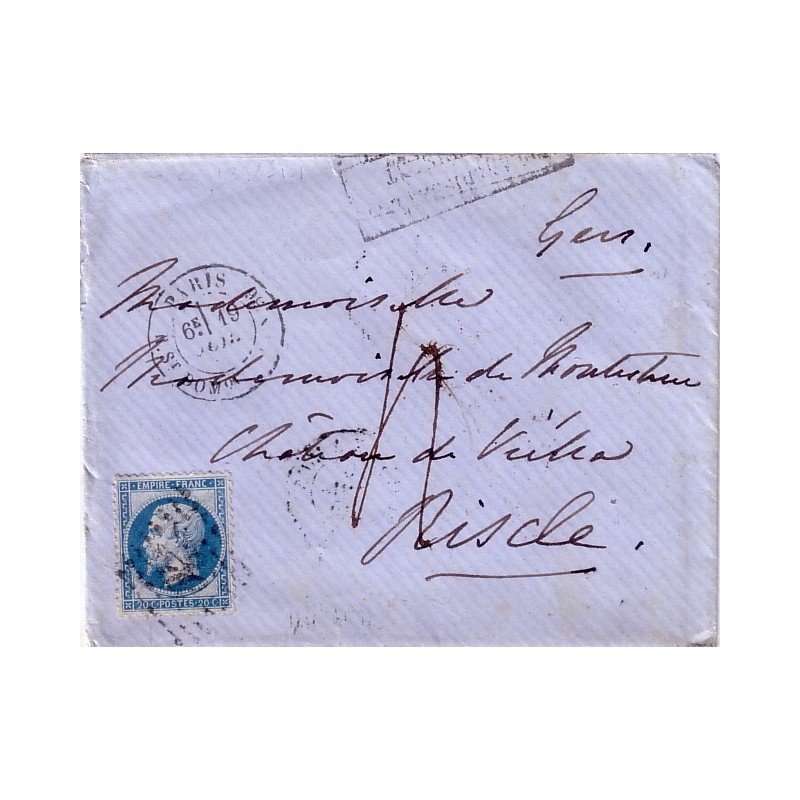 Gers.
Mademoiselle
Mademoiselle de
Château de Viella
Riscle.
PARIS
6E 19
R. ST DOMQUE
EMPIRE FRANC
20 C POSTES 20 C